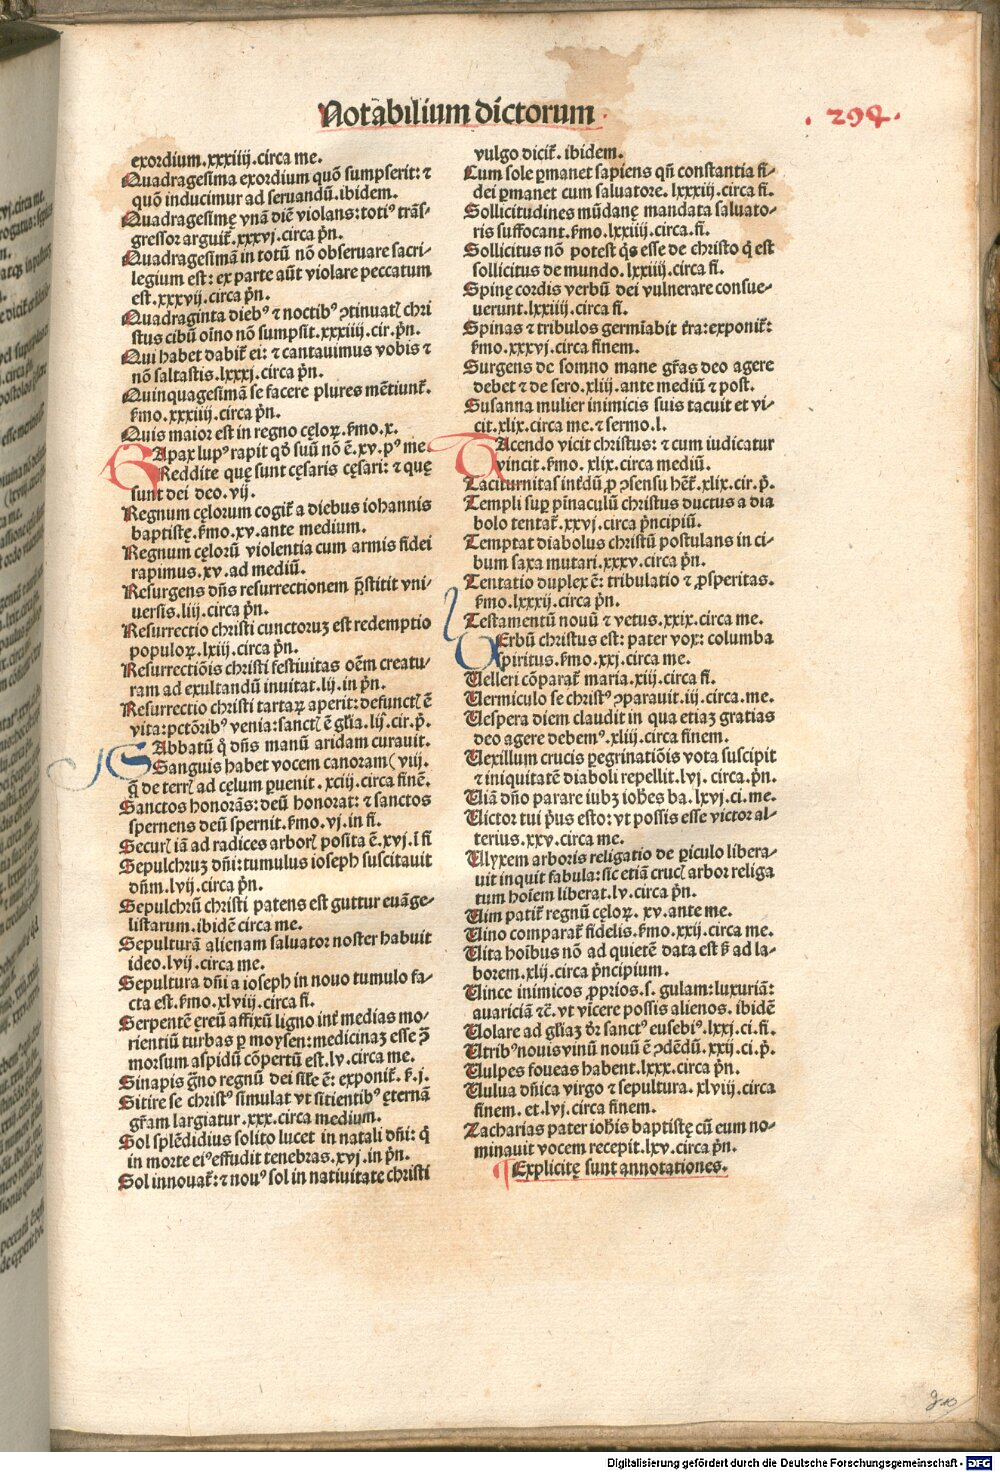 Notabilium dictorum
. 294 .
exordium.xxxiiij.circa me.
Quadragesima exordium quō sumpserit: ⁊
quō inducimur ad seruandū.ibidem.
Quadragesimę vnā diē violans:totiꝰ trās-
gressor arguit̄.xxxvj.circa pn̄.
Quadragesimā in totū nō obseruare sacri-
legium est: ex parte aūt violare peccatum
est.xxxvij.circa pn̄.
Quadraginta diebꝰ ⁊ noctibꝰ ꝯtinuatl chri
stus cibū oīno nō sumpsit.xxxiiij.cir.pn̄.
Qui habet dabit̄ ei: ⁊ cantauimus vobis ⁊
nō saltastis.lxxxj.circa pn̄.
Quinquagesimā se facere plures mētiunt̄.
ẜmo.xxxiiij.circa pn̄.
Quis maior est in regno cęloꝝ.ẜmo.x.
RApax lupꝰ rapit qd̄ suū nō ē.xv.pꝰ me.
Reddite quę sunt cęsaris cęsari: ⁊ quę
sunt dei deo.vij.
Regnum cęlorum cogit̄ a diebus iohannis
baptistę.ẜmo.xv.ante medium.
Regnum cęlorū violentia cum armis fidei
rapimus.xv.ad mediū.
Resurgens dn̄s resurrectionem p̄stitit vni-
uersis.liij.circa pn̄.
Resurrectio christi cunctoruꝫ est redemptio
populoꝝ.lxiij.circa pn̄.
Resurrectiōis christi festiuitas oēm creatu-
ram ad exultandū inuitat.lij.in pn̄.
Resurrectio christi tartaꝝ aperit: defunctl ē
vita:pctōribꝰ venia:sanctl ē glīa.lij.cir.p̄.
SAbbatū q̄ dn̄s manū aridam curauit.
Sanguis habet vocem canoram( viij.
q̄ de terrl ad cęlum ꝑuenit.xciij.circa finē.
Sanctos honorās:deū honorat: ⁊ sanctos
spernens deū spernit.ẜmo.vj.in fi.
Securl iā ad radices arborl posita ē.xvj.ī fi
Sepulchruꝫ dn̄i:tumulus ioseph suscitauit
dn̄m.lvij.circa pn̄.
Sepulchrū christi patens est guttur euāge-
listarum.ibidē circa me.
Sepulturā alienam saluator noster habuit
ideo.lvij.circa me.
Sepultura dn̄i a ioseph in nouo tumulo fa-
cta est.ẜmo.xlviij.circa fi.
Serpentē ęreū affixū ligno int̄ medias mo-
rientiū turbas ꝑ moysen:medicinaꝫ esse ꝯ̄
morsum aspidū cōpertū est.lv.circa me.
Sinapis gn̄o regnū dei sil̄e ē: exponit̄.ẜ.j.
Sitire se christꝰ simulat vt sitientibꝰ ęternā
gr̄am largiatur.xxx.circa medium.
Sol splēdidius solito lucet in natali dn̄i: q̄
in morte eiꝰ effudit tenebras.xvj.in pn̄.
Sol innouat̄:⁊ nouꝰ sol in natiuitate christi
vulgo dicit̄. ibidem.
Cum sole ꝑmanet sapiens qn̄ constantia fi-
dei ꝑmanet cum saluatore. lxxxiij.circa fi.
Sollicitudines mūdanę mandata saluato-
ris suffocant.ẜmo.lxxiiij.circa.fi.
Sollicitus nō potest qs̄ esse de christo q̄ est
sollicitus de mundo.lxxiiij.circa fi.
Spinę cordis verbū dei vulnerare consue-
uerunt.lxxiiij.circa fi.
Spinas ⁊ tribulos germīabit tr̄a:exponit̄:
ẜmo.xxxvj.circa finem.
Surgens de somno mane gr̄as deo agere
debet ⁊ de sero.xliij.ante mediū ⁊ post.
Susanna mulier inimicis suis tacuit et vi-
cit.xlix.circa me.⁊ sermo.l.
TAcendo vicit christus: ⁊ cum iudicatur
vincit.ẜmo. xlix.circa mediū.
Taciturnitas intēdū ꝓ ꝯsensu het̄.xlix.cir.p̄.
Templi suꝑ pīnaculū christus ductus a dia
bolo tentat̄.xxvj.circa pn̄cipiū.
Temptat diabolus christū postulans in ci-
bum saxa mutari.xxxv.circa pn̄.
Tentatio duplex ē: tribulatio ⁊ ꝓsperitas.
ẜmo.lxxxij.circa pn̄.
Testamentū nouū ⁊ vetus.xxix.circa me.
VErbū christus est: pater vox: columba
spiritus.ẜmo.xxj.circa me.
Uelleri cōparat̄ maria.xiij.circa fi.
Uermiculo se christꝰ ꝯparauit.iij.circa.me.
Uespera diem claudit in qua etiaꝫ gratias
deo agere debemꝰ.xliij.circa finem.
Uexillum crucis ꝑegrinatiōis vota suscipit
⁊ iniquitatē diaboli repellit.lvj.circa.pn̄.
Uiā dn̄o parare iubꝫ ioh̄es ba.lxvj.ci.me.
Uictor tui pr̄us esto: vt possis esse victor al-
terius.xxv.circa me.
Ulyxem arboris religatio de ꝑiculo libera-
uit inquit fabula:sic etiā crucl arbor religa
tum hoīem liberat.lv.circa pn̄.
Uim patit̄ regnū cęloꝝ. xv.ante me.
Uino comparat̄ fidelis.ẜmo.xxij.circa me.
Uita hoībus nō ad quietē data est ẜ ad la-
borem.xlij.circa pn̄cipium.
Uince inimicos ꝓprios.s. gulam:luxuriā:
auariciā ⁊c̄.vt vīcere possis alienos. ibidē
Uolare ad glīaꝫ dr̄ sanctꝰ eusebiꝰ.lxxj.ci.fi.
Utribꝰ nouis vinū nouū ē ꝯdēdū.xxij.ci.p̄.
Uulpes foueas habent.lxxx.circa pn̄.
Uulua dn̄ica virgo ⁊ sepultura. xlviij.circa
finem. et.lvj.circa finem.
Zacharias pater ioh̄is baptistę cū eum no-
minauit vocem recepit.lxv.circa pn̄.
¶ Explicitę sunt annotationes.
Digitalisierung gefördert durch die Deutsche Forschungsgemeinschaft - DFG